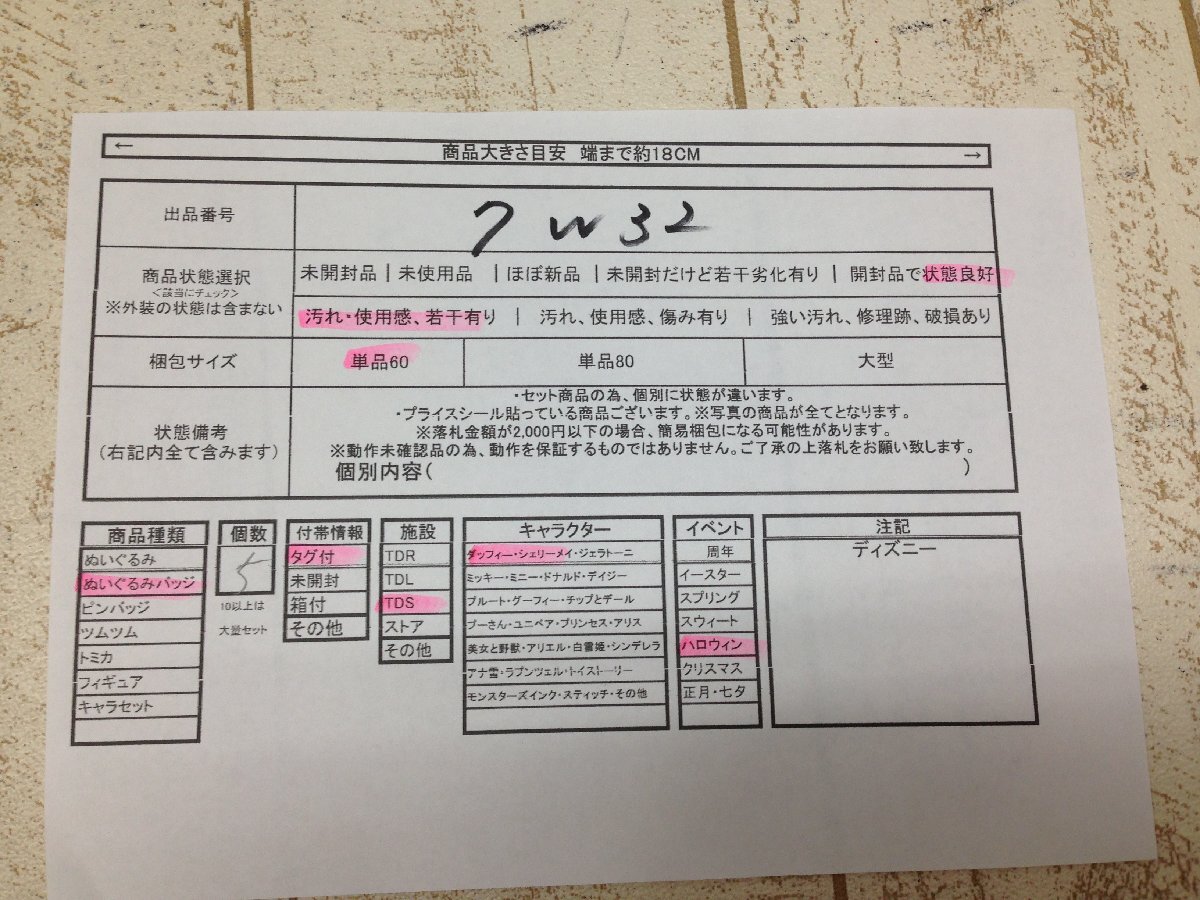 ← 商品大きさ目安 端まで約18CM →
出品番号 7W32
商品状態選択
<該当にチェック>
※外装の状態は含まない
未開封品 | 未使用品 | ほぼ新品 | 未開封だけど若干劣化有り | 開封品で状態良好
汚れ・使用感、若干有り | 汚れ、使用感、傷み有り | 強い汚れ、修理跡、破損あり
梱包サイズ 単品60 単品80 大型
状態備考
(右記内全て含みます)
・セット商品の為、個別に状態が違います。
・プライスシール貼っている商品ございます。※写真の商品が全てとなります。
※落札金額が2,000円以下の場合、簡易梱包になる可能性があります。
※動作未確認品の為、動作を保証するものではありません。ご了承の上落札をお願い致します。
個別内容( )
商品種類
ぬいぐるみ
ぬいぐるみバッジ
ピンバッジ
ツムツム
トミカ
フィギュア
キャラセット
個数
5
10以上は
大量セット
付帯情報
タグ付
未開封
箱付
その他
施設
TDR
TDL
TDS
ストア
その他
キャラクター
ダッフィー・シェリーメイ・ジェラトーニ
ミッキー・ミニー・ドナルド・デイジー
プルート・グーフィー・チップとデール
プーさん・ユニベア・プリンセス・アリス
美女と野獣・アリエル・白雪姫・シンデレラ
アナ雪・ラプンツェル・トイストーリー
モンスターズインク・スティッチ・その他
イベント
周年
イースター
スプリング
スウィート
ハロウィン
クリスマス
正月・七夕
注記
ディズニー